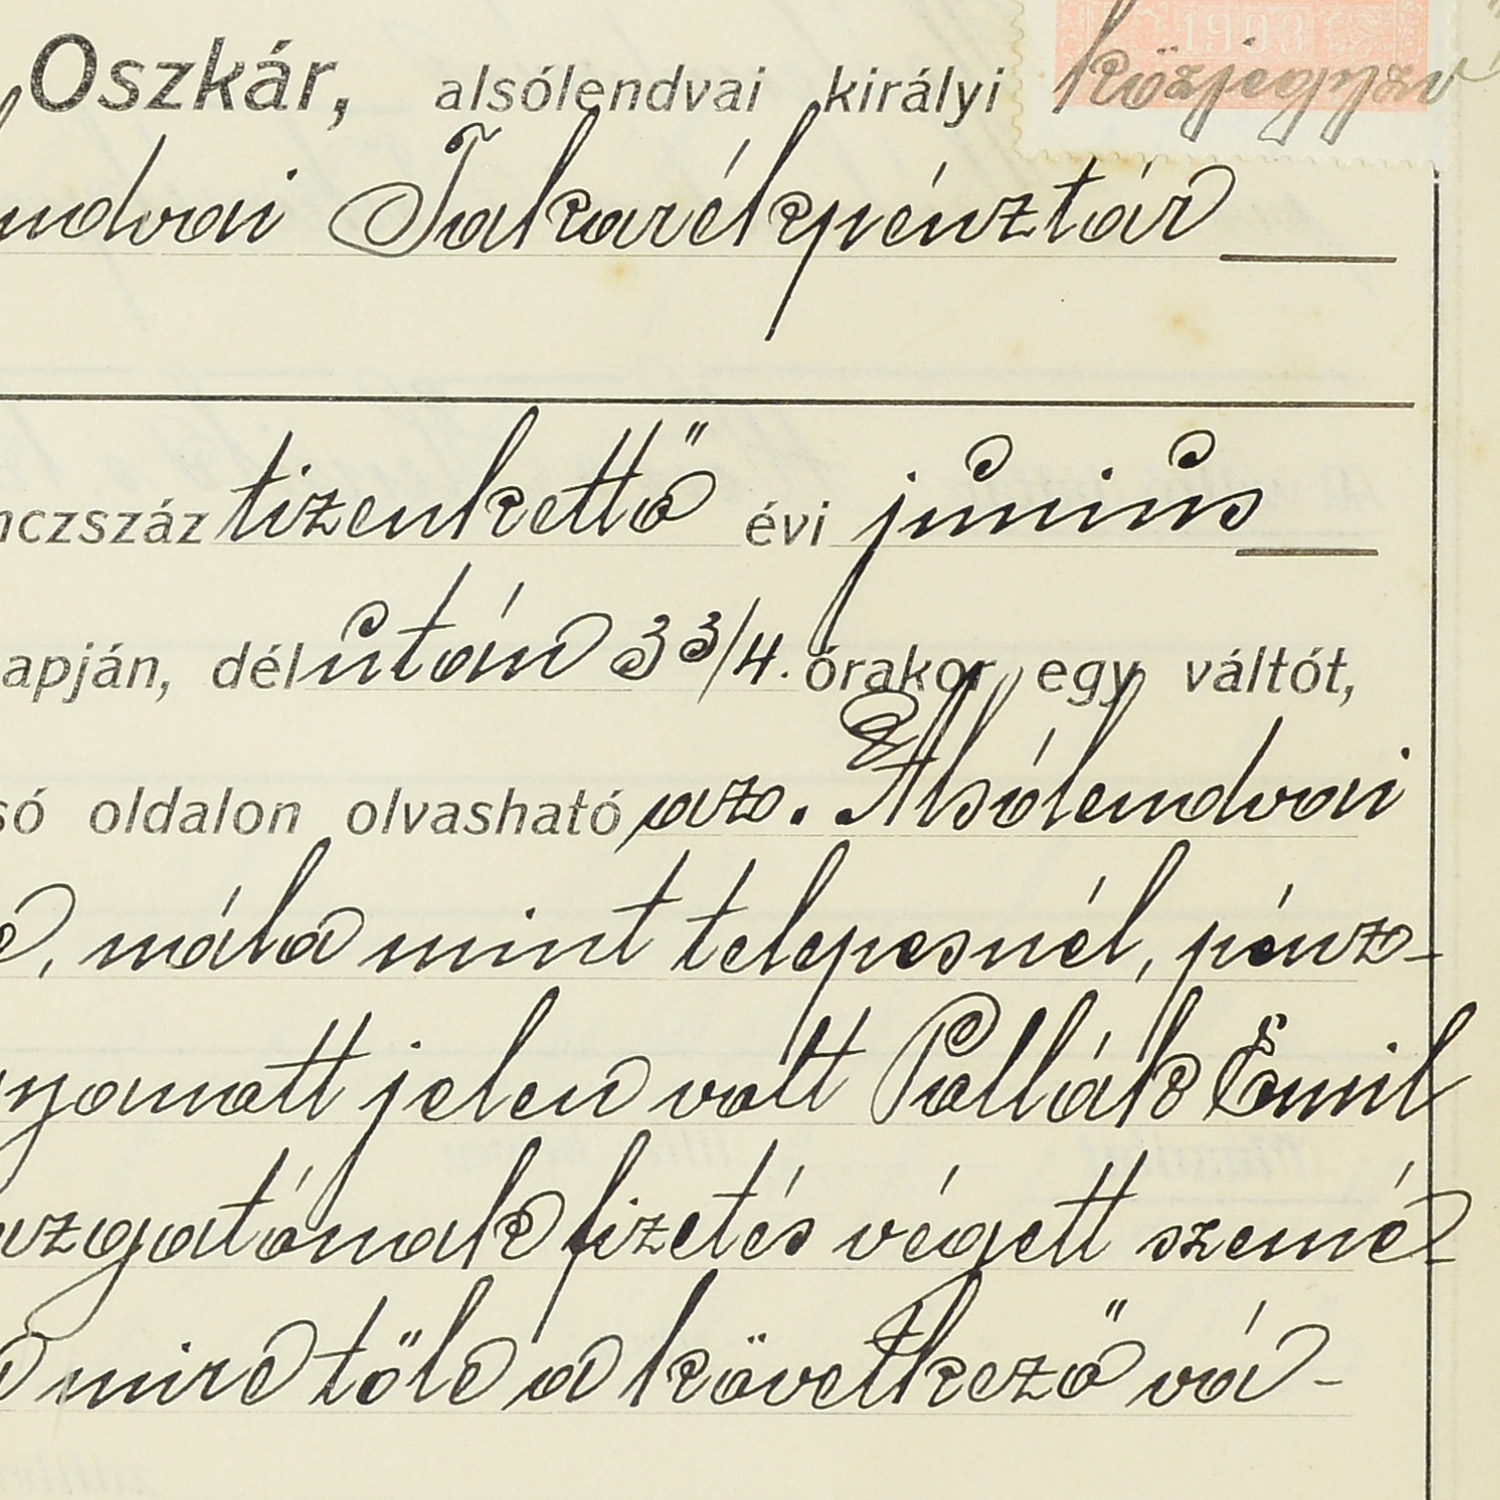 Oszkár, alsólendvai királyi közjegyző
1903
ndvai Takarékpénztár
nczszáz tizenkettő évi június
apján, délután 3 3/4. órakor egy váltót,
só oldalon olvasható az. Alsólendvai
e, nála mint telepesnél, pénz-
nyomatt jelen volt Pollák Emil
azgatónak fizetés végett szemé-
mire tőle a következő vá-